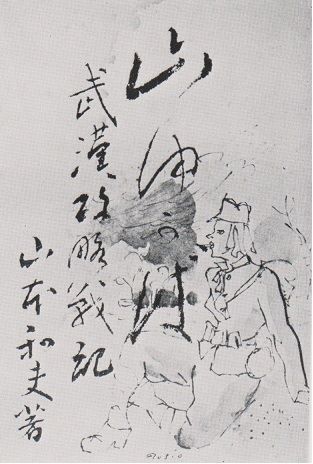 山ゆかば
武漢攻略戦記
山本和夫著